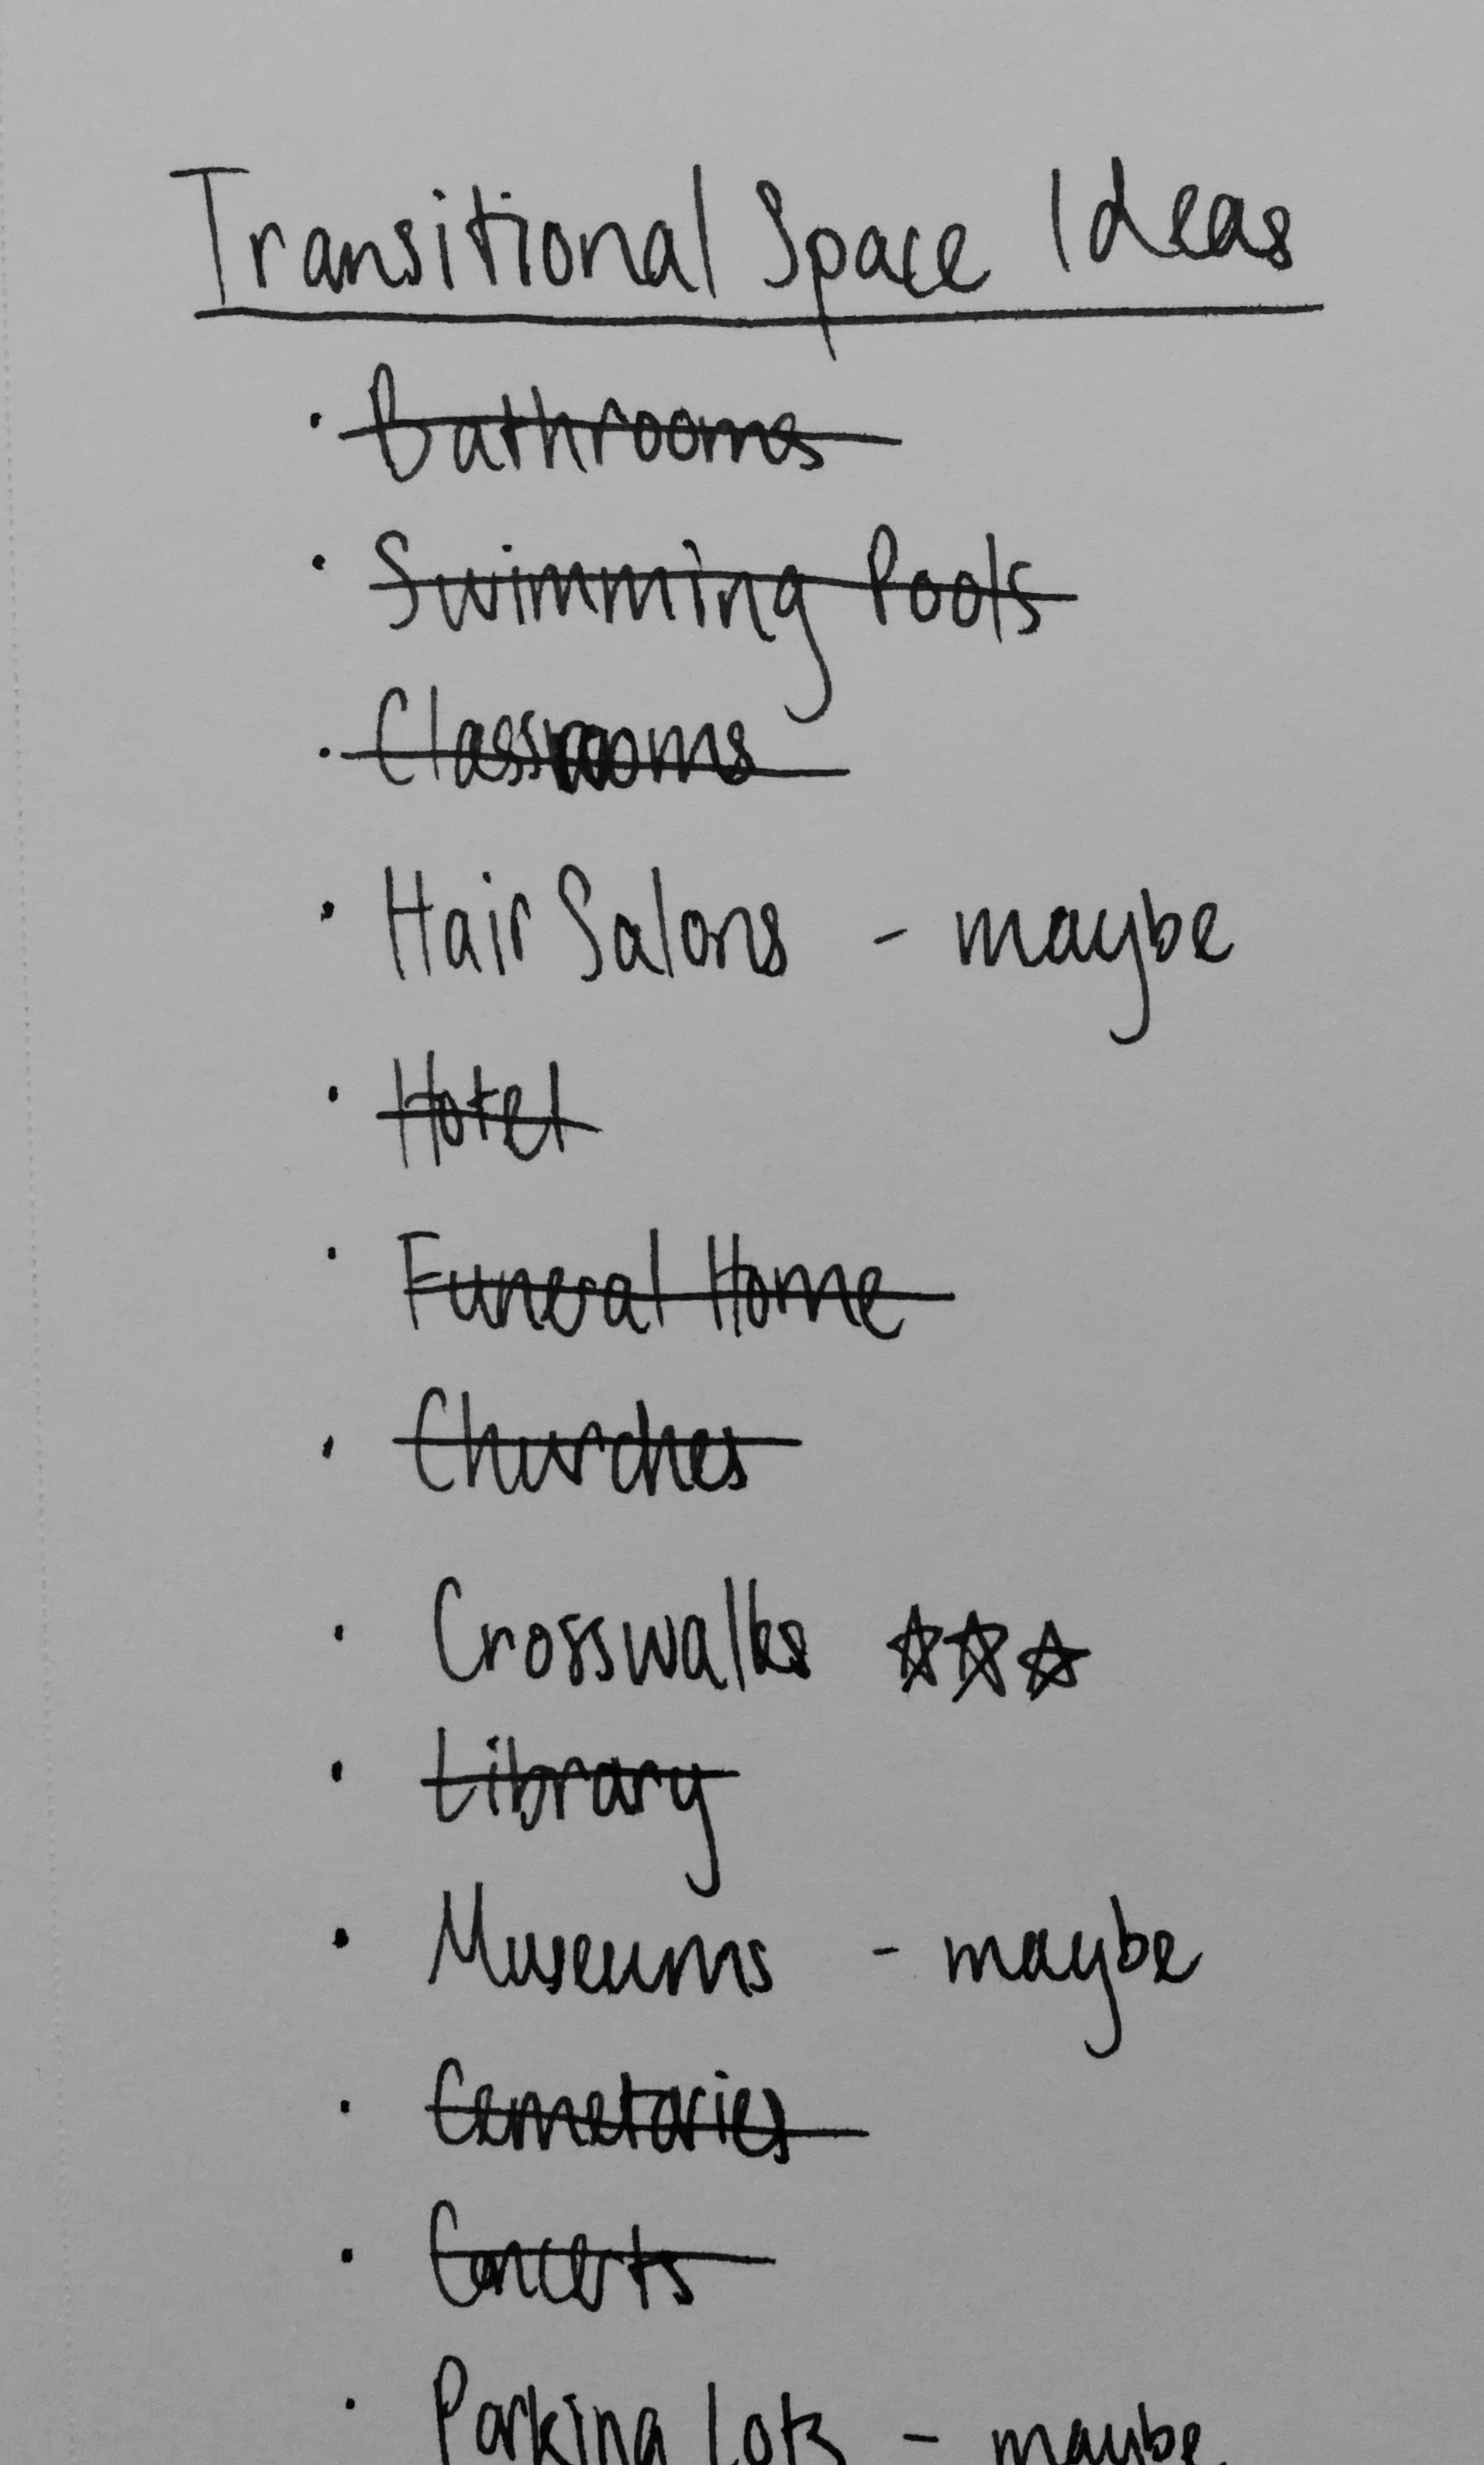 Transitional Space Ideas
· Bathrooms
· Swimming Pools
· Classrooms
· Hair Salons - maybe
· Hotel
· Funeral Home
· Churches
· Crosswalks ☆☆☆
· Library
· Museums - maybe
· Cemetaries
· Concerts
· Parking Lots - maybe